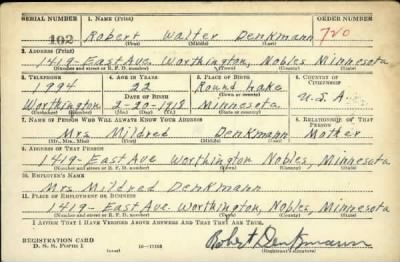 SERIAL NUMBER 1. NAME (Print) ORDER NUMBER
102 Robert Walter Denkmann 720
(First) (Middle) (Last)
2. ADDRESS (Print)
1419-East Ave. Worthington, Nobles, Minnesota
(Number and street or R. F. D. number) (Town) (County) (State)
3. TELEPHONE 4. AGE IN YEARS 5. PLACE OF BIRTH 6. COUNTRY OF CITIZENSHIP
1994 22 Round Lake
DATE OF BIRTH (Town or county) U.S.A.
Worthington 2-20-1918 Minnesota
(Exchange) (Number) (Mo.) (Day) (Yr.) (State or country)
7. NAME OF PERSON WHO WILL ALWAYS KNOW YOUR ADDRESS 8. RELATIONSHIP OF THAT PERSON
Mrs Mildred Denkmann Mother
(Mr., Mrs., Miss) (First) (Middle) (Last)
9. ADDRESS OF THAT PERSON
1419-East Ave Worthington Nobles, Minnesota
(Number and street or R. F. D. number) (Town) (County) (State)
10. EMPLOYER'S NAME
Mrs Mildred Denkmann
11. PLACE OF EMPLOYMENT OR BUSINESS
1419-East Ave. Worthington, Nobles, Minnesota
(Number and street or R. F. D. number) (Town) (County) (State)
I AFFIRM THAT I HAVE VERIFIED ABOVE ANSWERS AND THAT THEY ARE TRUE.
REGISTRATION CARD
D. S. S. FORM 1 Robert Denkmann
(Registrant's signature)